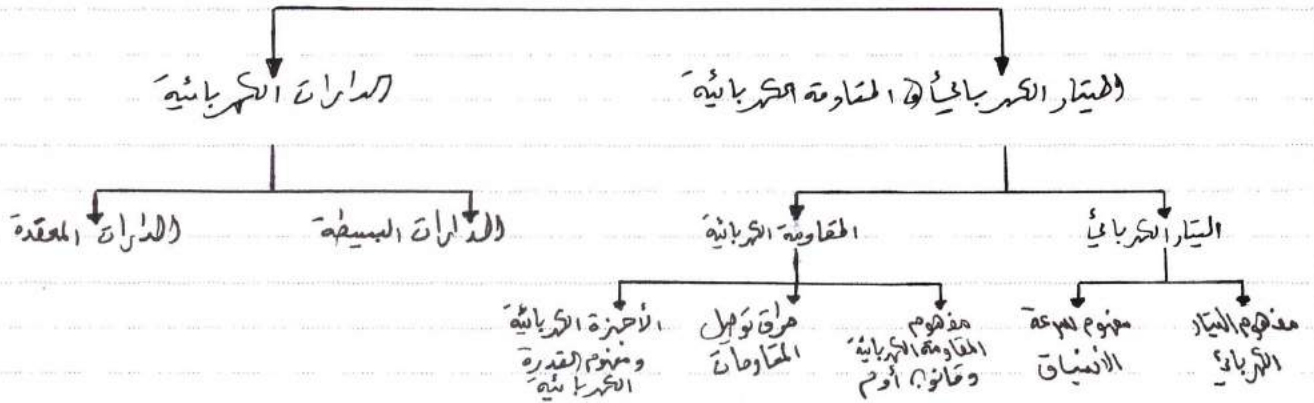 التيار الكهربائي و المقاومة الكهربائية
الدارات الكهربائية
التيار الكهربائي
المقاومة الكهربائية
الدارات البسيطة
الدارات المعقدة
مفهوم التيار
الكهربائي
مفهوم سرعة
الانسياق
مفهوم
المقاومة الكهربائية
وقانون أوم
طرق توصيل
المقاومات
الأجهزة الكهربائية
ومفهوم القدرة
الكهربائية